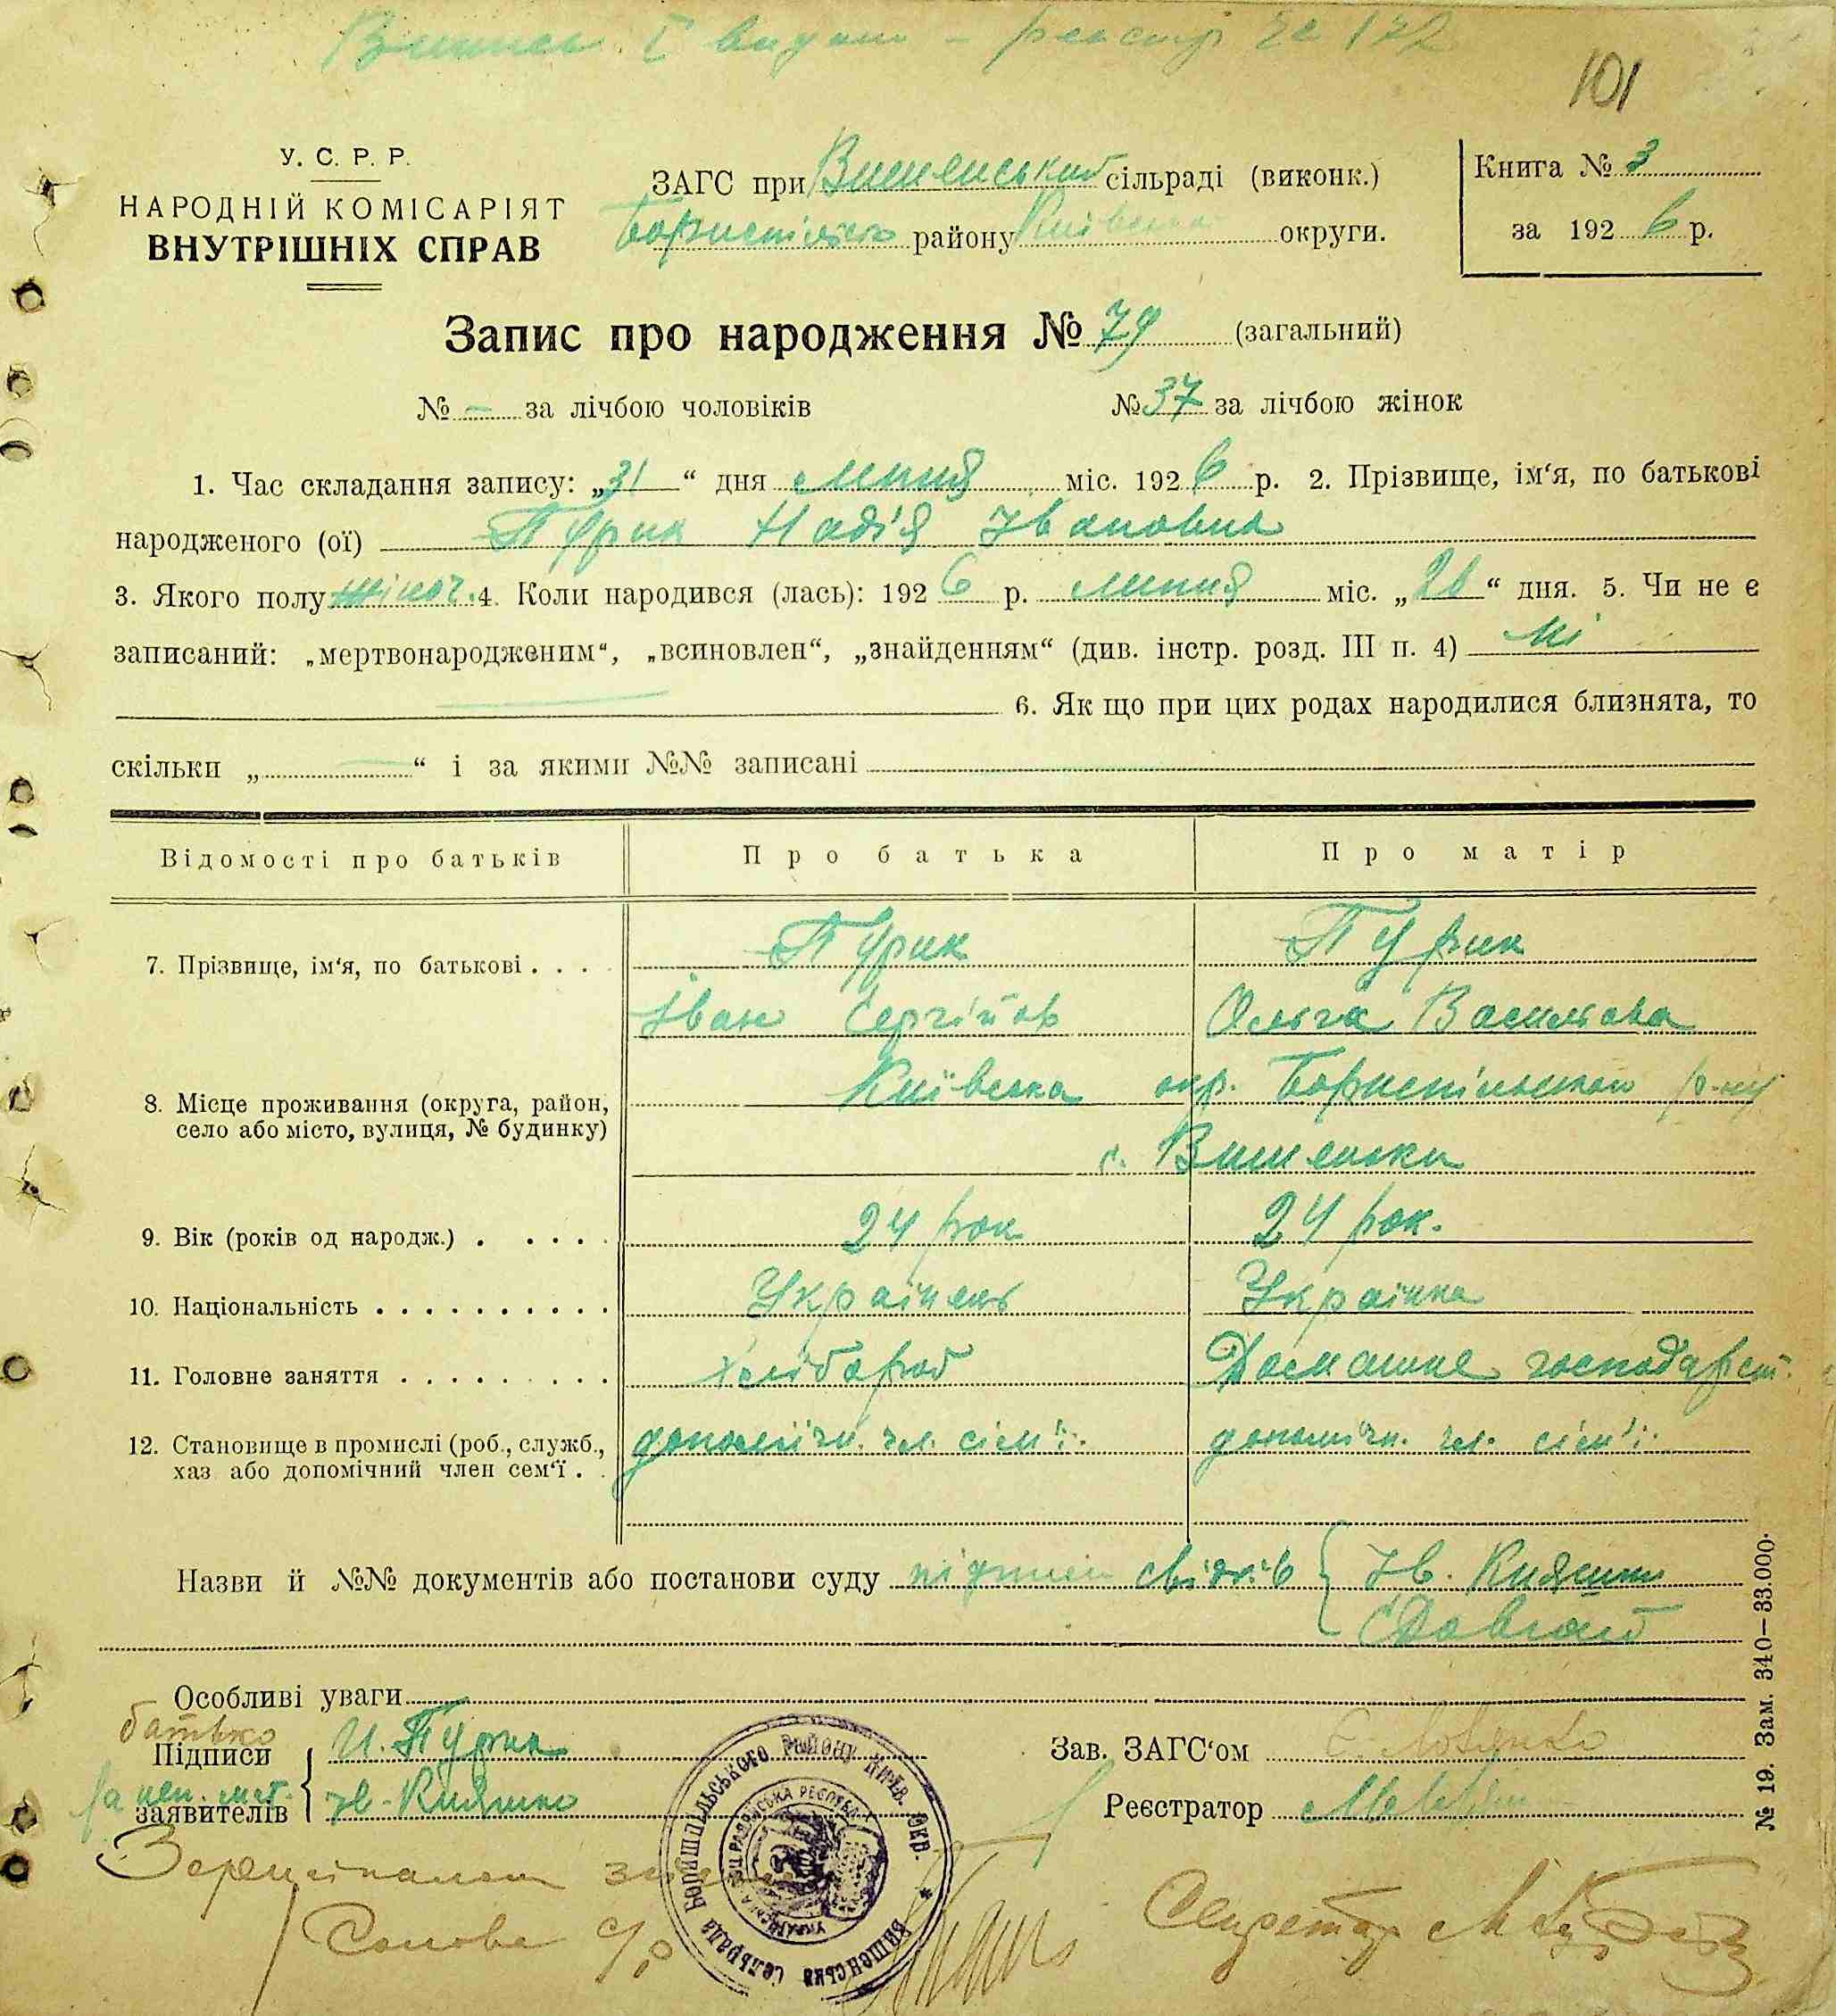 Випись I видано – реєстр № 172
101
У. С. Р. Р.
НАРОДНІЙ КОМІСАРІЯТ
ВНУТРІШНІХ СПРАВ
ЗАГС при Вишенський сільраді (виконк.)
Бориспільсь району Київська округи.
Книга № 3
за 1926 р.
Запис про народження № 79 (загальний)
№ – за лічбою чоловіків № 37 за лічбою жінок
1. Час складання запису: „31“ дня липня міс. 1926 р. 2. Прізвище, ім‘я, по батькові
народженого (ої) Пурик Надія Івановна
3. Якого полу жіноч. 4. Коли народився (лась): 1926 р. липня міс. „26“ дня. 5. Чи не є
записаний: „мертвонародженим“, „всиновлен“, „знайденням“ (див. інстр. розд. III п. 4) ні
6. Як що при цих родах народилися близнята, то
скільки „ “ і за якими №№ записані
Відомості про батьків Про батька Про матір
7. Прізвище, ім‘я, по батькові . . . . Пурик Пурик
Іван Сергійов Ольга Василова
8. Місце проживання (округа, район, Київська окр. Бориспільського р-ну
село або місто, вулиця, № будинку) с. Вишеньки
9. Вік (років од народж.) . . . . . 24 рок 24 рок.
10. Національність . . . . . . . . . . Українець Українка
11. Головне заняття . . . . . . . . . Хлібороб Домашнє господарст.
12. Становище в промислі (роб., служб., допомічн. чл. сім'ї. допомічн. чл. сім'ї.
хаз або допомічний член сем‘ї . .
Назви й №№ документів або постанови суду підписи свідків Ів. Кияшко
Довгай
Особливі уваги
батько
Підписи И. Пурик Зав. ЗАГС‘ом
заявителів Ів. Кияшко Реєстратор
Голова с/р Секретар
Вишенська Сельрада Боришпільського Району Київ. Окр.
№ 19. Зам. 340—33.000.